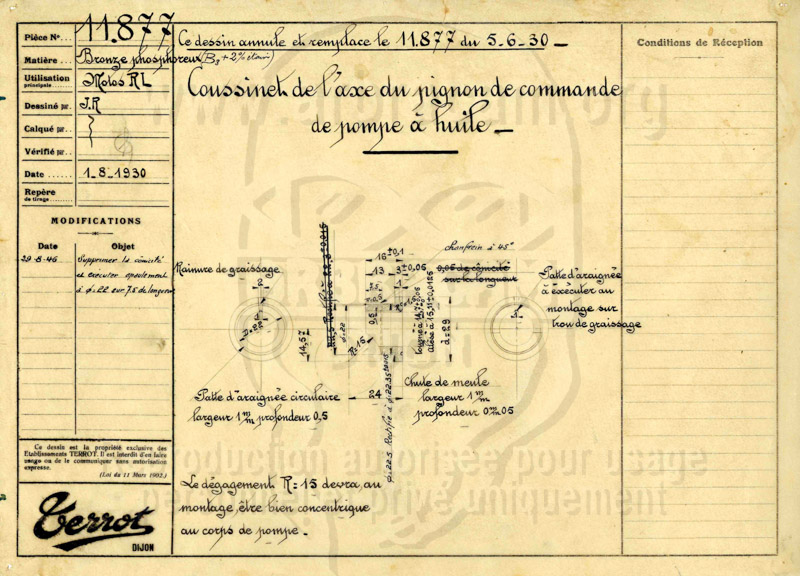 Pièce N° 11.877
Matière Bronze phosphoreux (B3 + 2% étain)
Utilisation principale Motos RL
Dessiné par J.R
Calqué par
Vérifié par
Date 1_8_1930
Repère de tirage
MODIFICATIONS
Date Objet
29-8-46 Supprimer la cônicité
et exécuter épaulement
à φ=22 sur 7.5 de longueur
Ce dessin est la propriété exclusive des
Etablissements TERROT. Il est interdit d'en faire
usage ou de le communiquer sans autorisation
expresse.
(Loi du 11 Mars 1902.)
Terrot
DIJON
Ce dessin annule et remplace le 11.877 du 5_6_30_
Coussinet de l'axe du pignon de commande
de pompe à huile_
Conditions de Réception
Rainure de graissage
2
D=22
14,57
φ=22
R=15
16 ±0,1
13
3
7.5
±0,05
9,5
chanfrein à 45°
0,05 de cônicité
sur la longueur
d=29
24
φ:22.5 Rectifié à φ 22.35
Patte d'araignée
à exécuter au
montage sur
trou de graissage
Patte d'araignée circulaire
largeur 1 m/m profondeur 0,5
Chute de meule
largeur 1 m/m
profondeur 0m/m 05
Le dégagement R=15 devra, au
montage, être bien concentrique
au corps de pompe_
production autorisée pour usage
privé uniquement